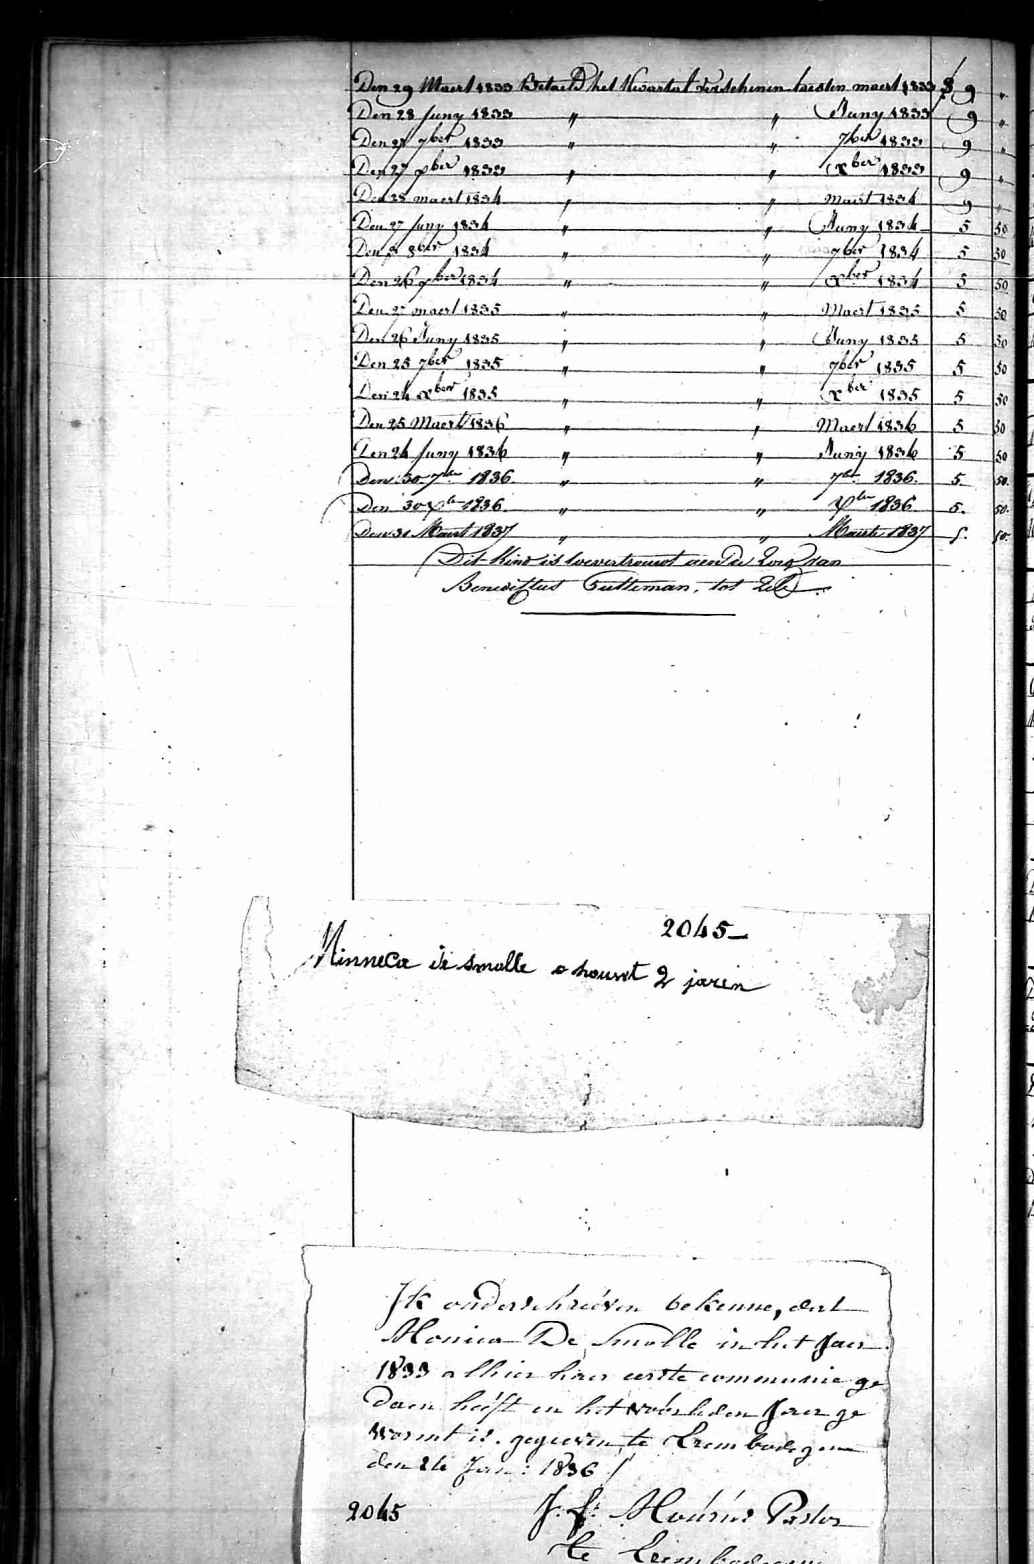 Den 29 Maert 1833 Betaeld het Kwartael verschenen lresten maert 1833 f 9 "
Den 28 Juny 1833 " " Juny 1833 9 "
Den 27 7ber 1833 " " 7ber 1833 9 "
Den 27 xber 1833 " " xber 1833 9 "
Den 28 maert 1834 " " maert 1834 9 "
Den 27 Juny 1834 " " Juny 1834 5 50
Den 3 8ber 1834 " " 7ber 1834 5 50
Den 26 xber 1834 " " xber 1834 5 50
Den 27 maert 1835 " " Maert 1835 5 50
Den 26 Juny 1835 " " Juny 1835 5 50
Den 25 7ber 1835 " " 7ber 1835 5 50
Den 24 xber 1835 " " xber 1835 5 50
Den 25 Maert 1836 " " Maert 1836 5 50
Den 24 Juny 1836 " " Juny 1836 5 50
Den 30 7bre 1836 " " 7bre 1836. 5 50.
Den 30 xbre 1836. " " xbre 1836 5. 50.
Den 31 Maert 1837 " " Maerte 1837 5. 50.
Dit Kind is toevertrouwt aen de zorg van
Benedictus tot Zele.
2045
Minneca de smalle o houwt 2 jaren
Ik onderschreéven bekenne, dat
Monica De Smalle in het Jaer
1833 alhier haer eerste communie ge
daen heéft en het vóorleden Jaer ge
vormt is. gegeeven te Erembodegem
den 2de Jan: 1836 /
2045
Pastor
te Erembodegem